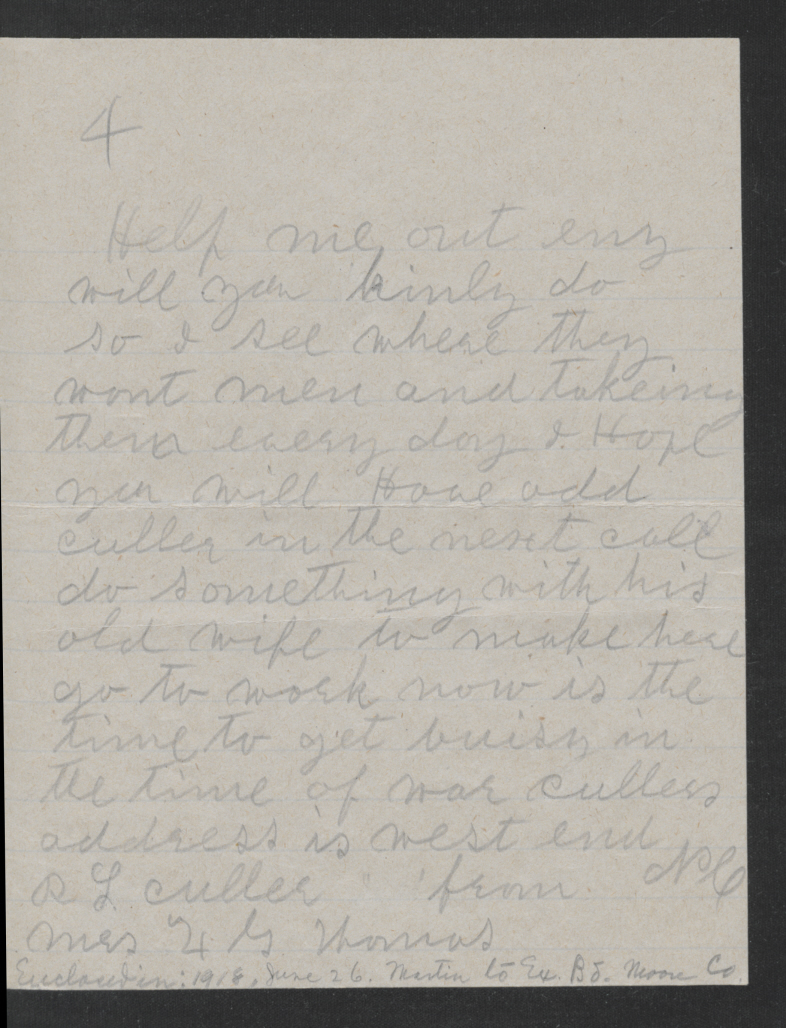 4
Help me out eny
will you kinly do
so I see where they
wont men and takeing
them every day I Hope
you will Have odd
culler in the next call
do something with his
old wife to make here
go to work now is the
time to get buisy in
the time of war cullers
address is west end
N C
R L culler from
mrs G Thomas
Enclosed in: 1918, June 26. Martin to Ex. Bd. Moore Co.